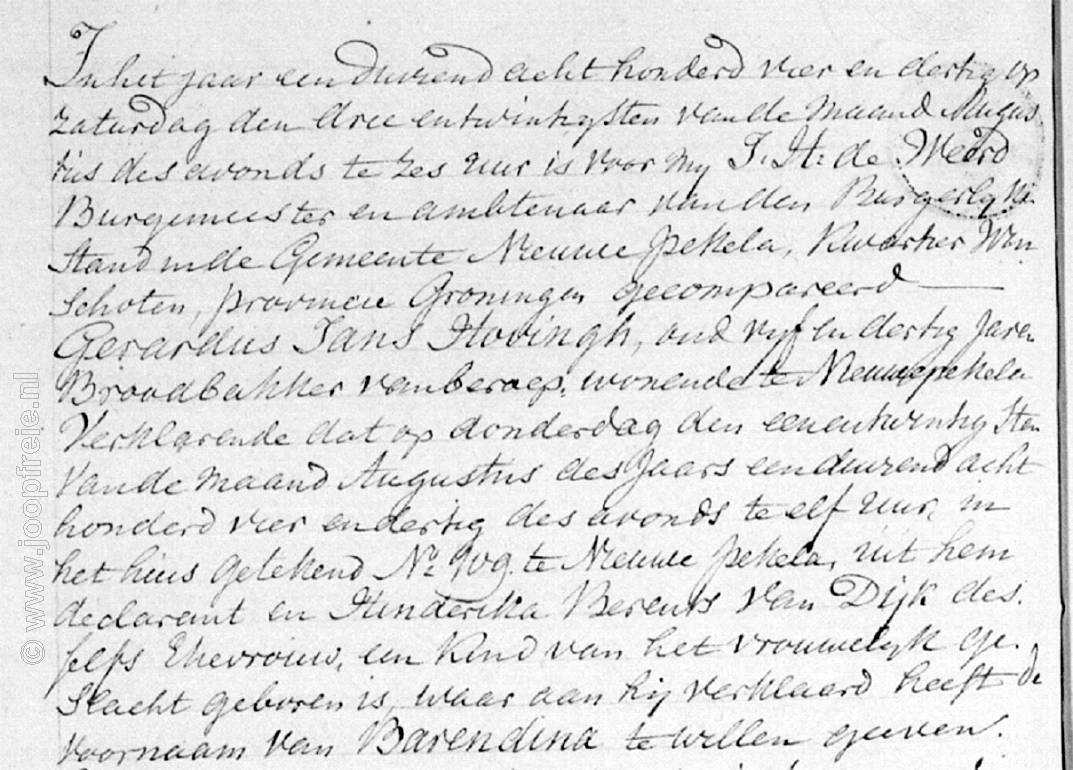 In het jaar een duizend acht honderd vier en dertig op
Zaturdag den drie entwintigsten van de maand Augus
tus des avonds te zes uur is voor my J. H: de Weerd
Burgemeester en ambtenaar van den Burgerlyke
Stand in de Gemeente Nieuwe Pekela, Kwartier Win
schoten, provincie Groningen gecompareerd
Gerardus Jans Hovingh, oud vyf en dertig Jaren
Broodbakker van beroep, wonende te Nieuwe pekela
Verklarende dat op donderdag den eenentwintigsten
Van de maand Augustus des Jaars een duizend acht
honderd vier en dertig des avonds te elf uur, in
het huis getekend No te Nieuwe Pekela, uit hem
declarant en Hinderika Berents Van Dijk des
selfs Ehevrouw, een Kind van het vrouwelyk ge.
Slacht geboren is, waar aan hij verklaard heeft de
voornaam van Barendina te willen geeven.
© www.joopfreije.nl